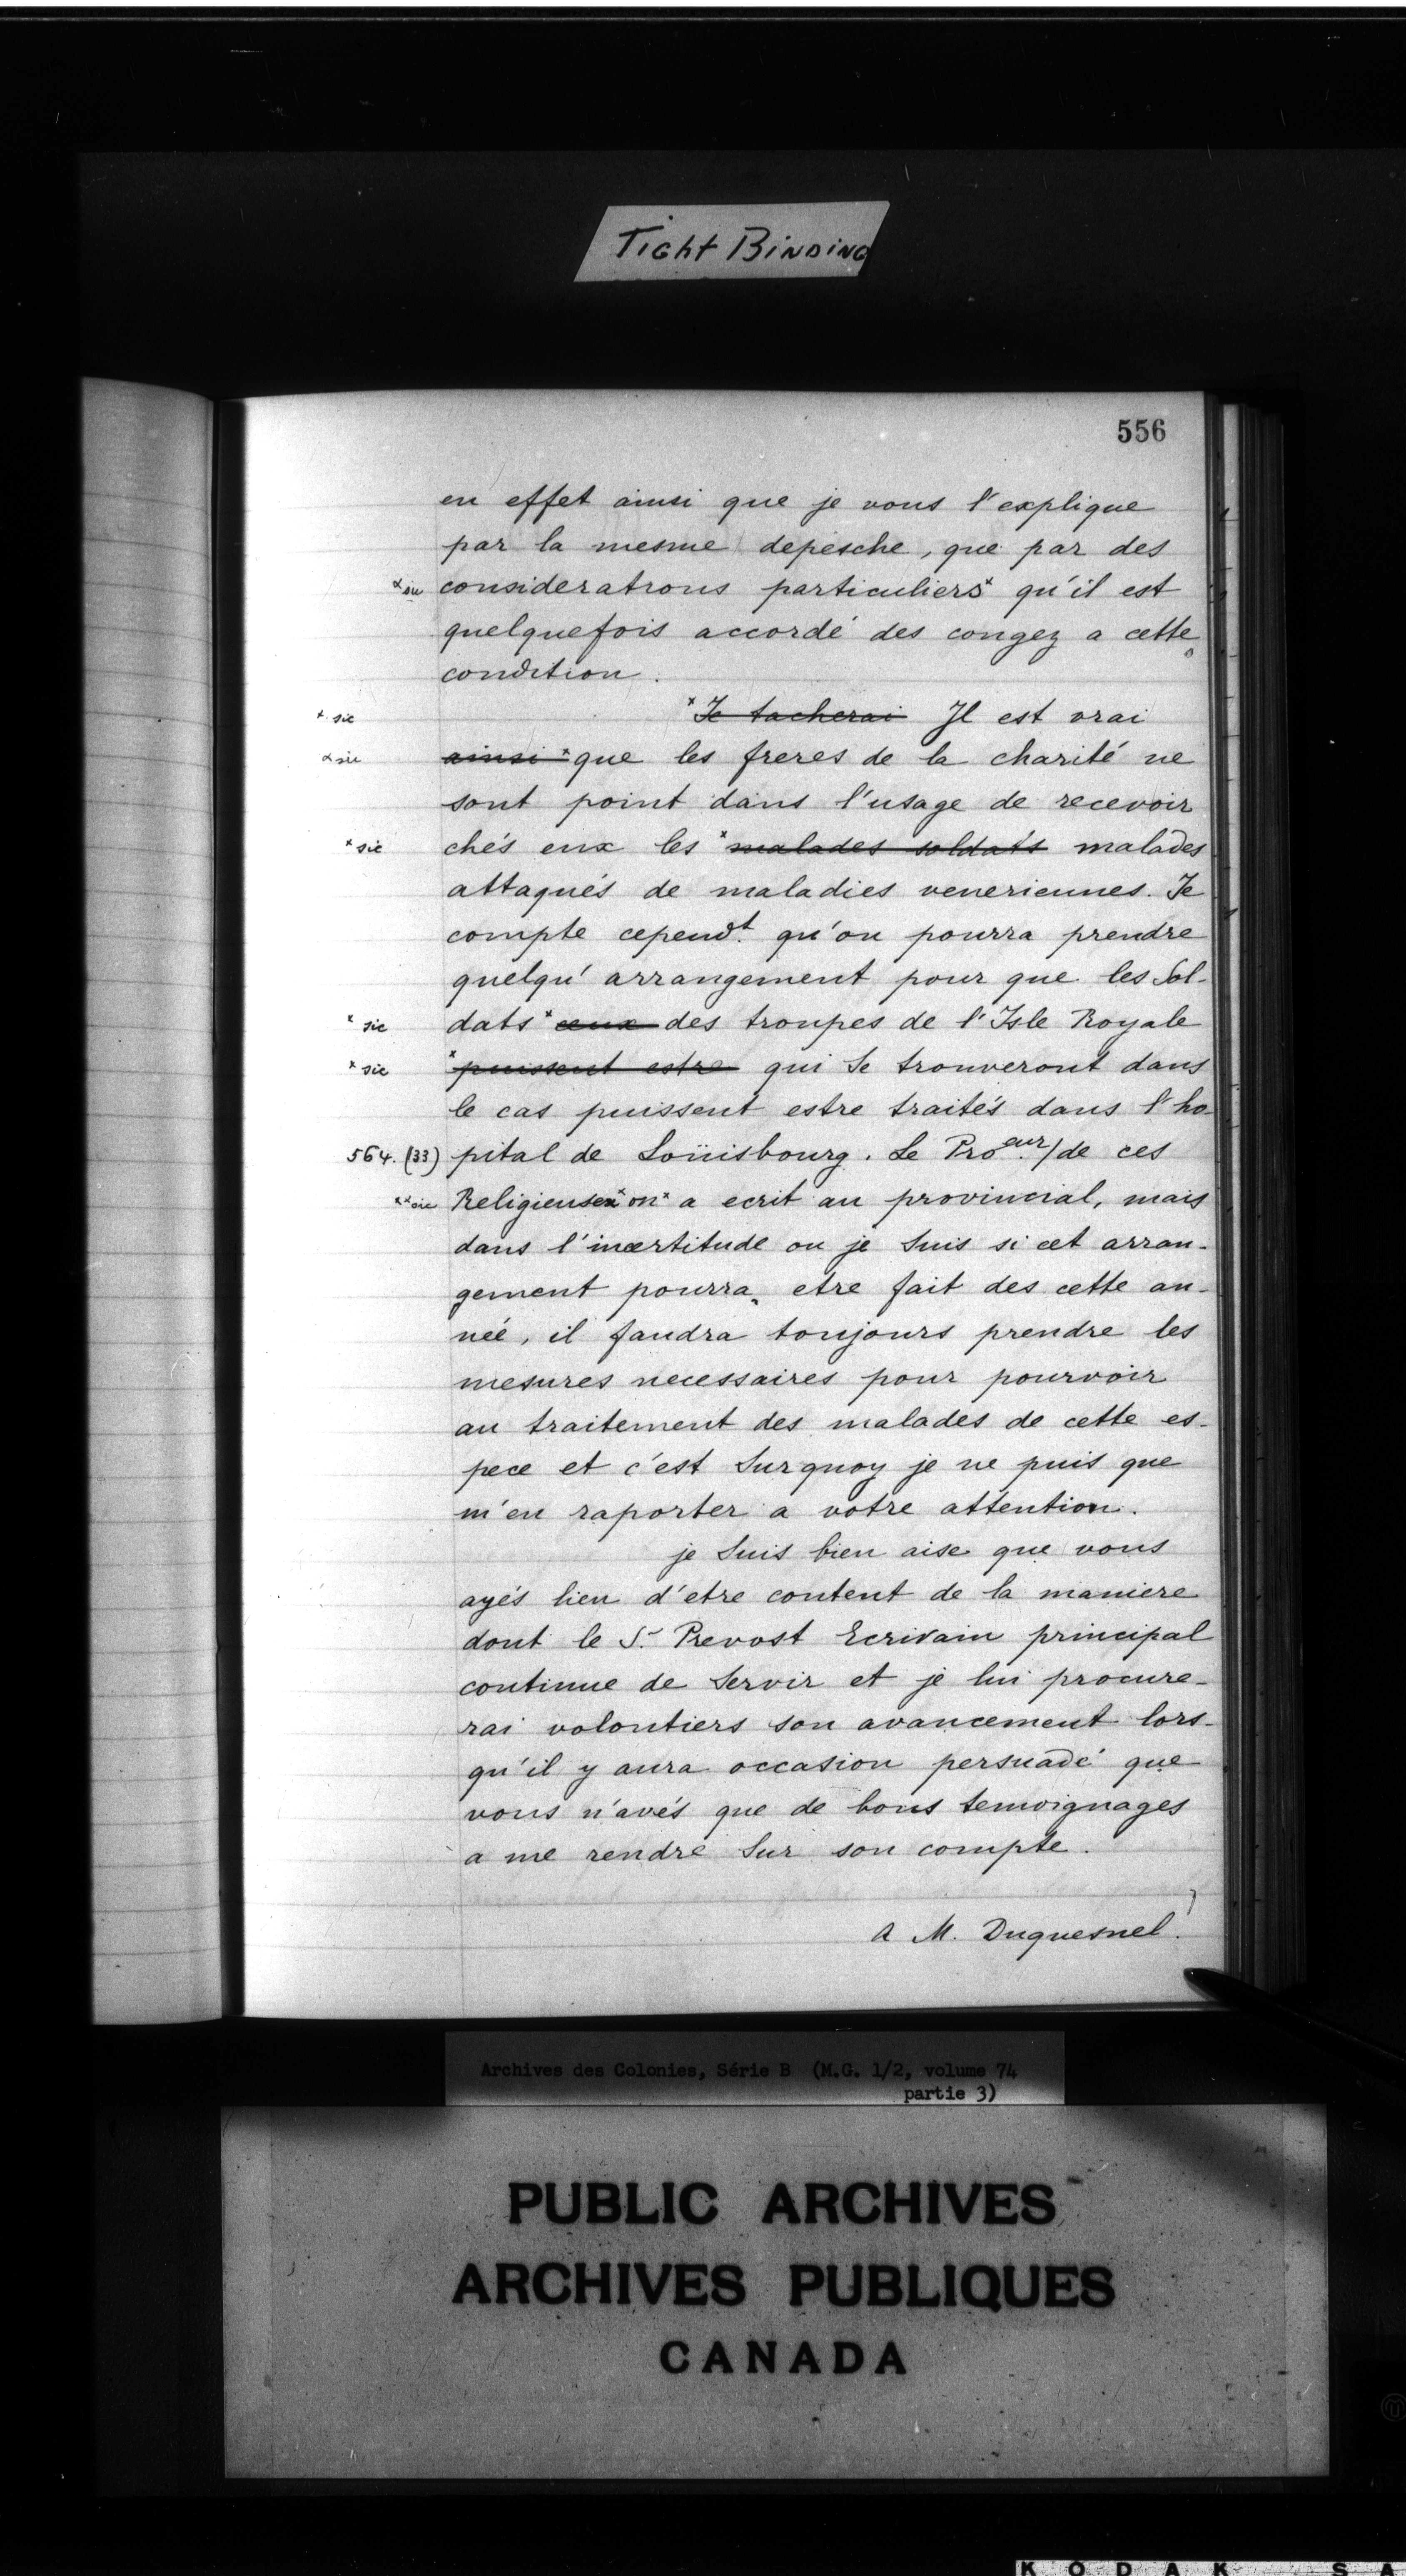 Tight Binding
556
en effet ainsi que je vous l'explique
par la mesme depesche, que par des
x sic consideratrous particuliers x qu'il est
quelquefois accordé des congez a cette
condition.
x sic x Je tacherai Il est vrai
x sic ainsi x que les freres de la charité ne
sont point dans l'usage de recevoir
x sic chés eux les x malades soldats malades
attaqués de maladies veneriennes. Je
compte cependt. qu'on pourra prendre
quelqu'arrangement pour que les Sol-
x sic dats x ceux des troupes de l'Isle Royale
x sic x puissent estre qui Se trouveront dans
le cas puissent estre traités dans l'ho-
564. (33) pital de Loüisbourg. Le Proeur/de ces
xx sic Religieusex x on x a ecrit au provincial, mais
dans l'incertitude ou je Suis si cet arran-
gement pourra etre fait des cette an-
neé, il faudra toujours prendre les
mesures necessaires pour pourvoir
au traitement des malades de cette es-
pece et c'est Surquoy je ne puis que
m'en raporter a votre attention.
je Suis bien aise que vous
ayés lieu d'etre content de la maniere
dont le Sr. Prevost Ecrivain principal
continue de Servir et je lui procure-
rai volontiers son avancement lors-
qu'il y aura occasion persuadé que
vous n'avés que de bons temoignages
a me rendre Sur son compte.
A M. Duquesnel.
Archives des Colonies, Série B (M.G. 1/2, volume 74
partie 3)
PUBLIC ARCHIVES
ARCHIVES PUBLIQUES
CANADA
KODAK SA